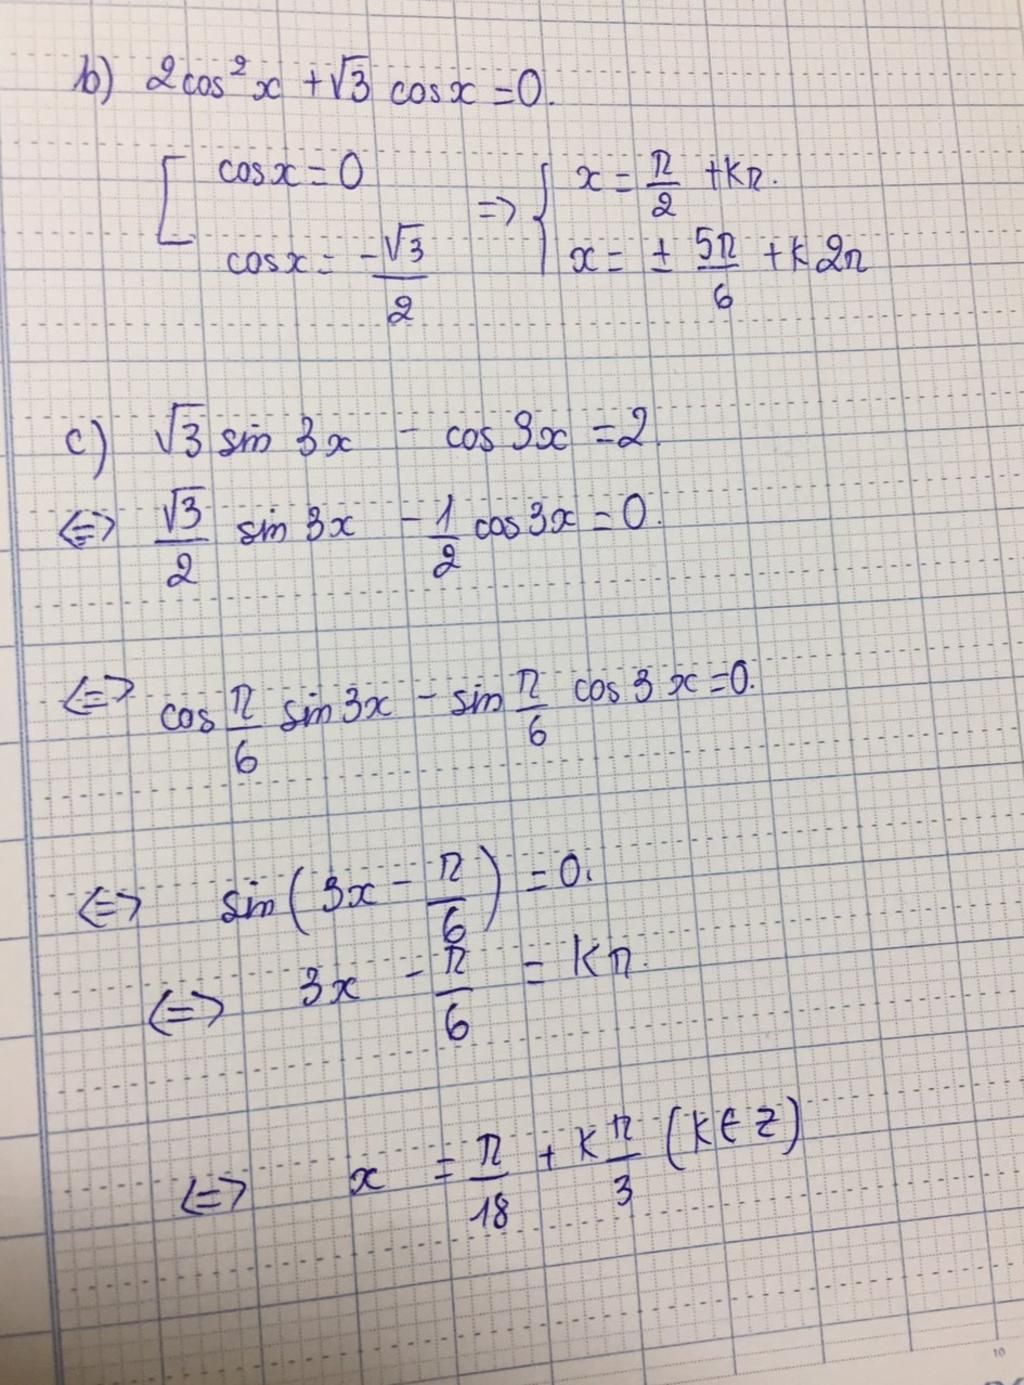 b) 2cos²x + √3 cosx = 0.
[ cosx = 0 => { x = π/2 + kπ.
cosx = -√3/2 x = ± 5π/6 + k2π
c) √3 sin 3x - cos 3x = 2.
<=> √3/2 sin 3x - 1/2 cos3x = 0.
<=> cos π/6 sin 3x - sin π/6 cos 3x = 0.
<=> sin(3x - π/6) = 0.
<=> 3x - π/6 = kπ.
<=> x = π/18 + k π/3 (k∈Z)
10